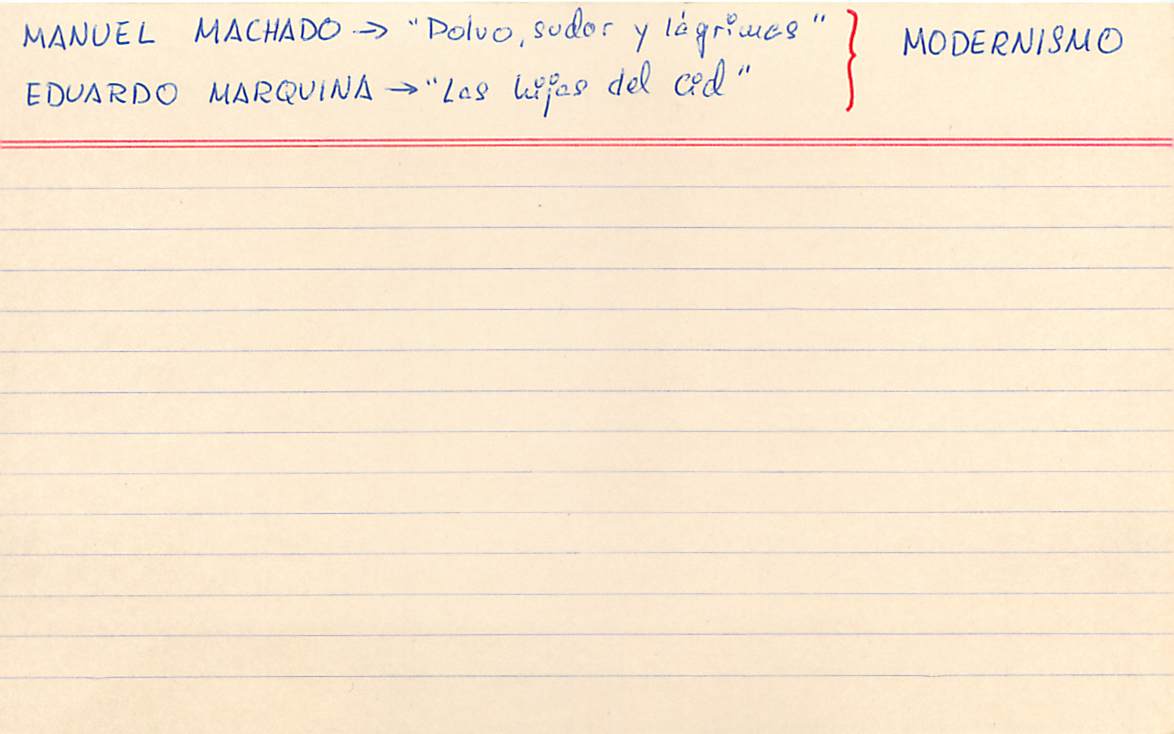 MANUEL MACHADO → "Polvo, sudor y lágrimas" } MODERNISMO
EDUARDO MARQUINA → "Las hijas del Cid"